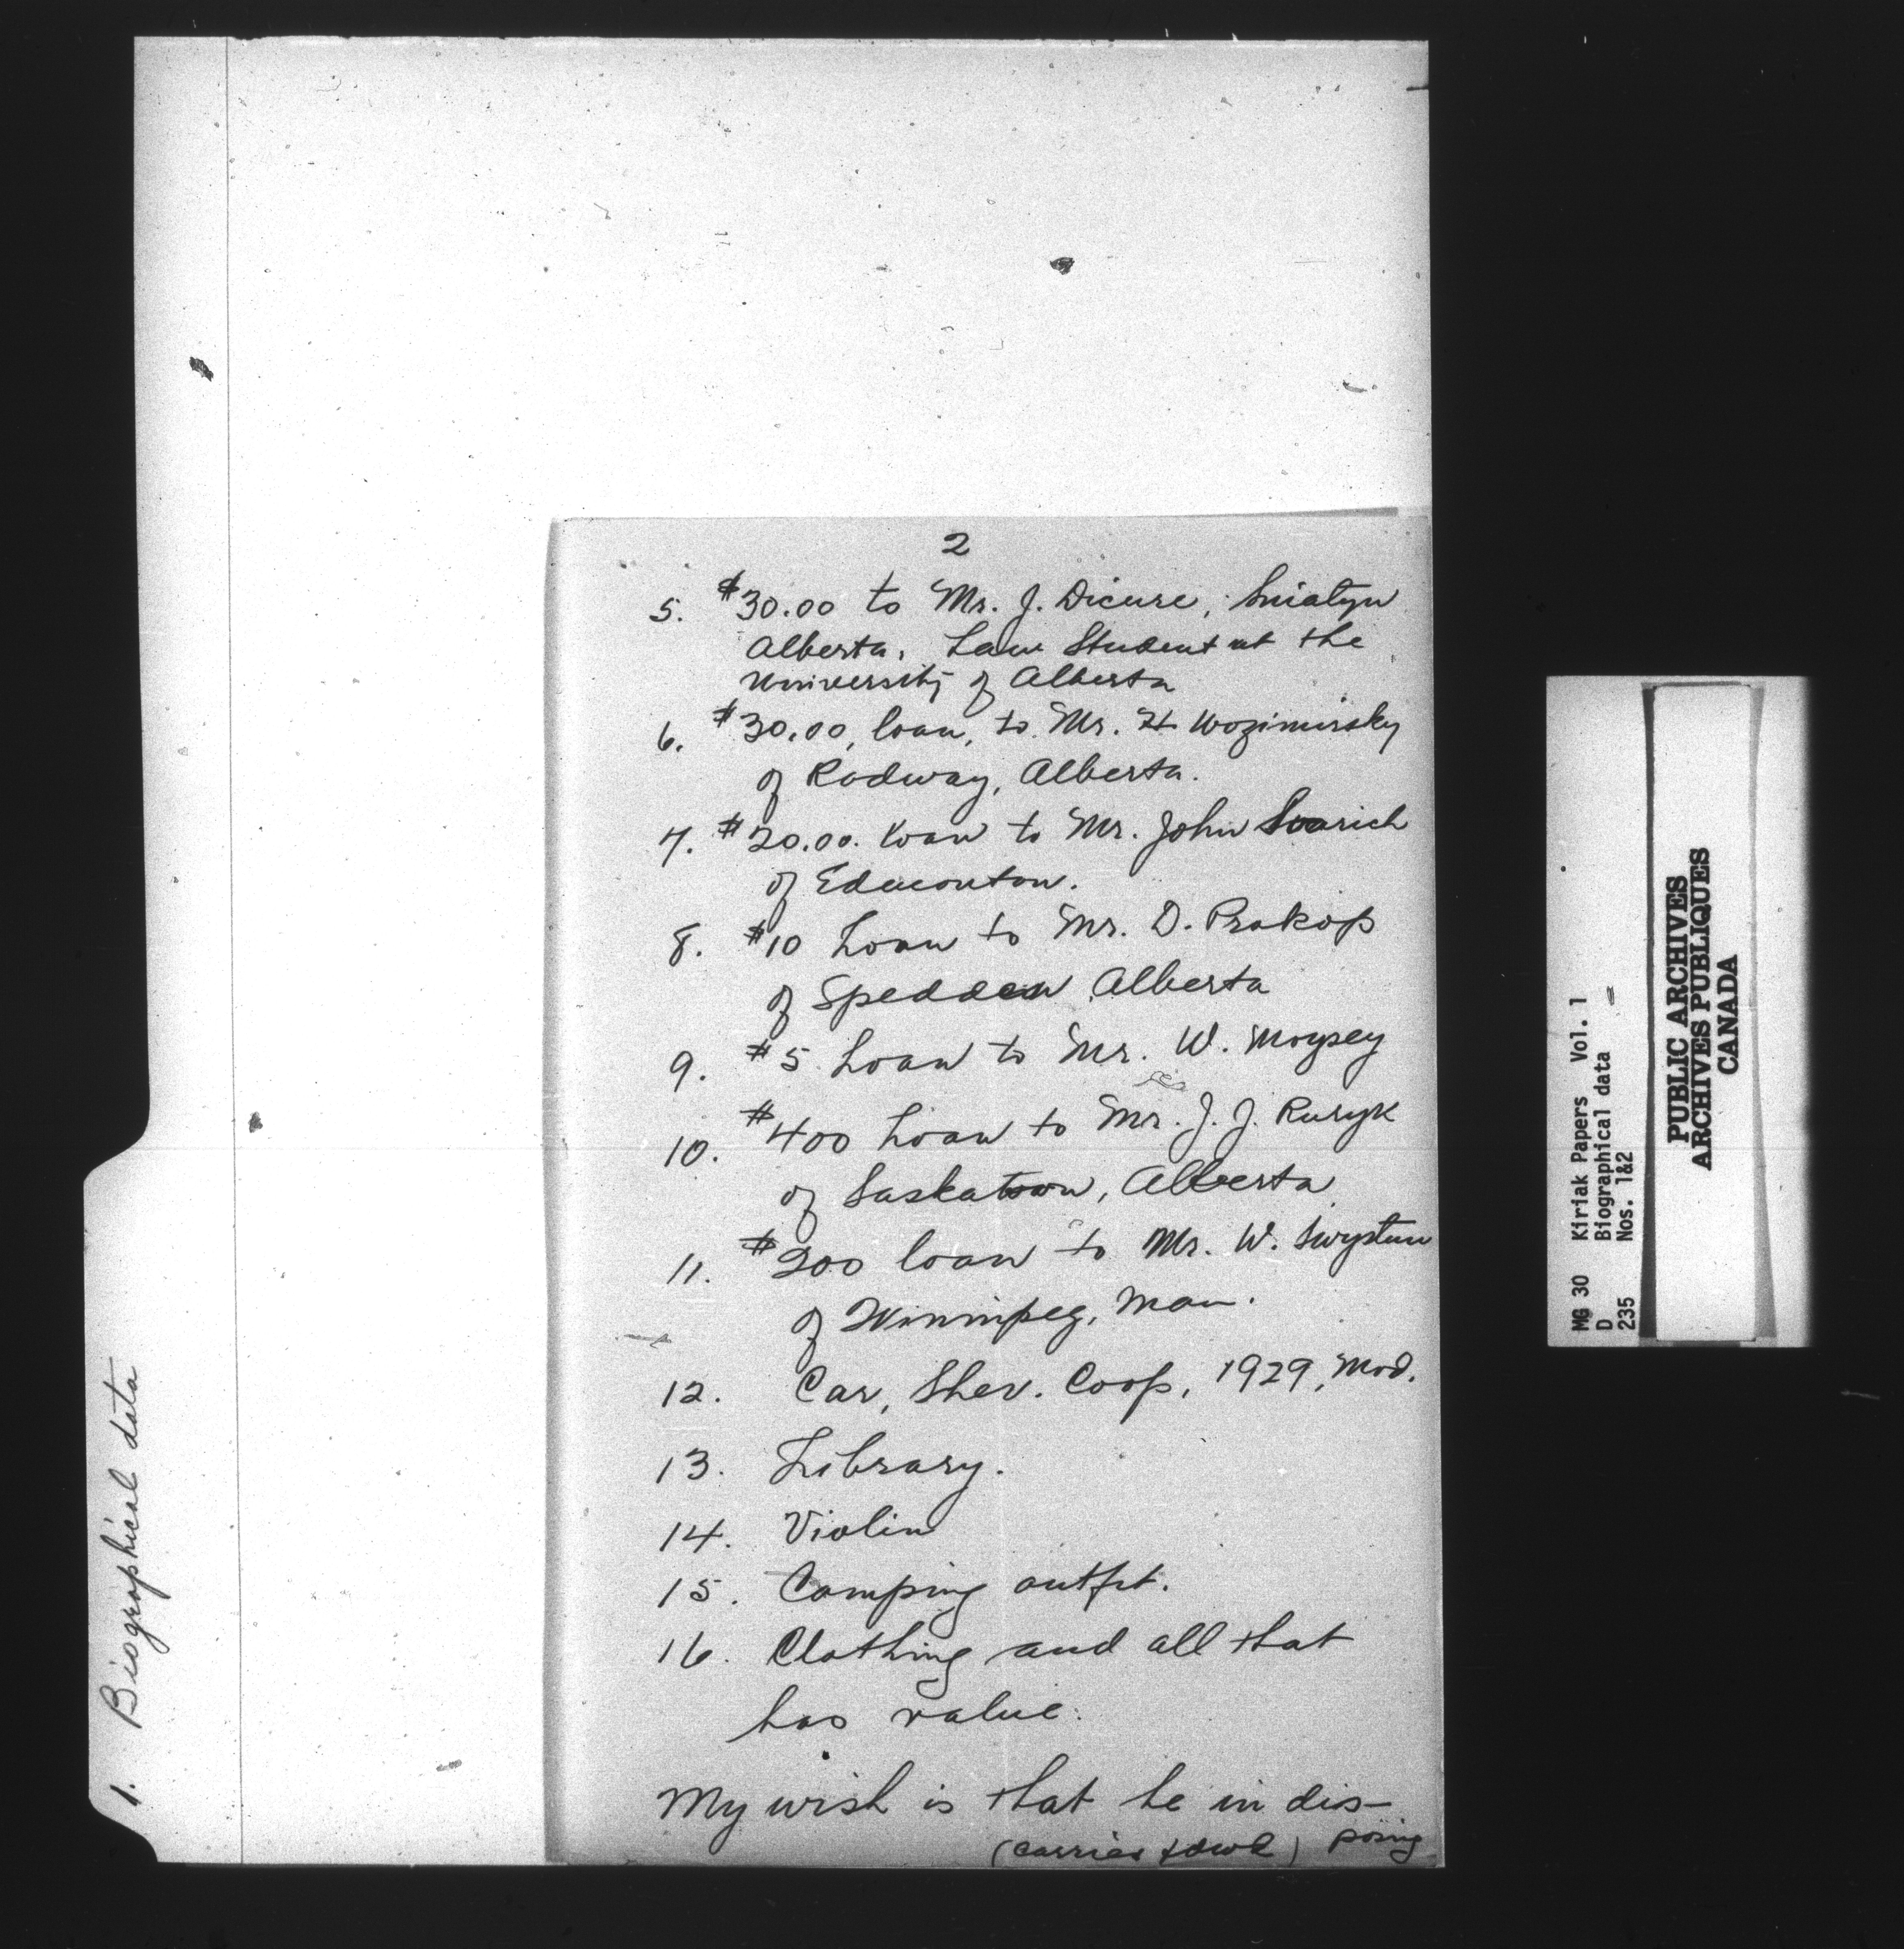 2
5. $30.00 to Mr. J. Dicure, Sniatyn
Alberta. Law Student at the
University of Alberta
6. $30.00, loan, to Mr. H Wozimirsky
of Radway, Alberta.
7. $20.00. loan to Mr. John Svarich
of Edmonton.
8. $10 Loan to Mr. D. Prokop
of Spedden, Alberta
9. $5 Loan to Mr. W. Moysey
10. $400 Loan to Mr. J. J. Ruryk
of Saskatoon, Alberta
11. $200 loan to Mr. W. Swystun
of Winnipeg, Man.
12. Car, Shev. Coop, 1929, Mod.
13. Library.
14. Violin
15. Camping outfit.
16. Clothing and all that
has value.
My wish is that he in dis-
posing
(carries
1. Biographical data
MG 30 Kiriak Papers Vol. 1
D Biographical data
235 Nos. 1&2
PUBLIC ARCHIVES
ARCHIVES PUBLIQUES
CANADA